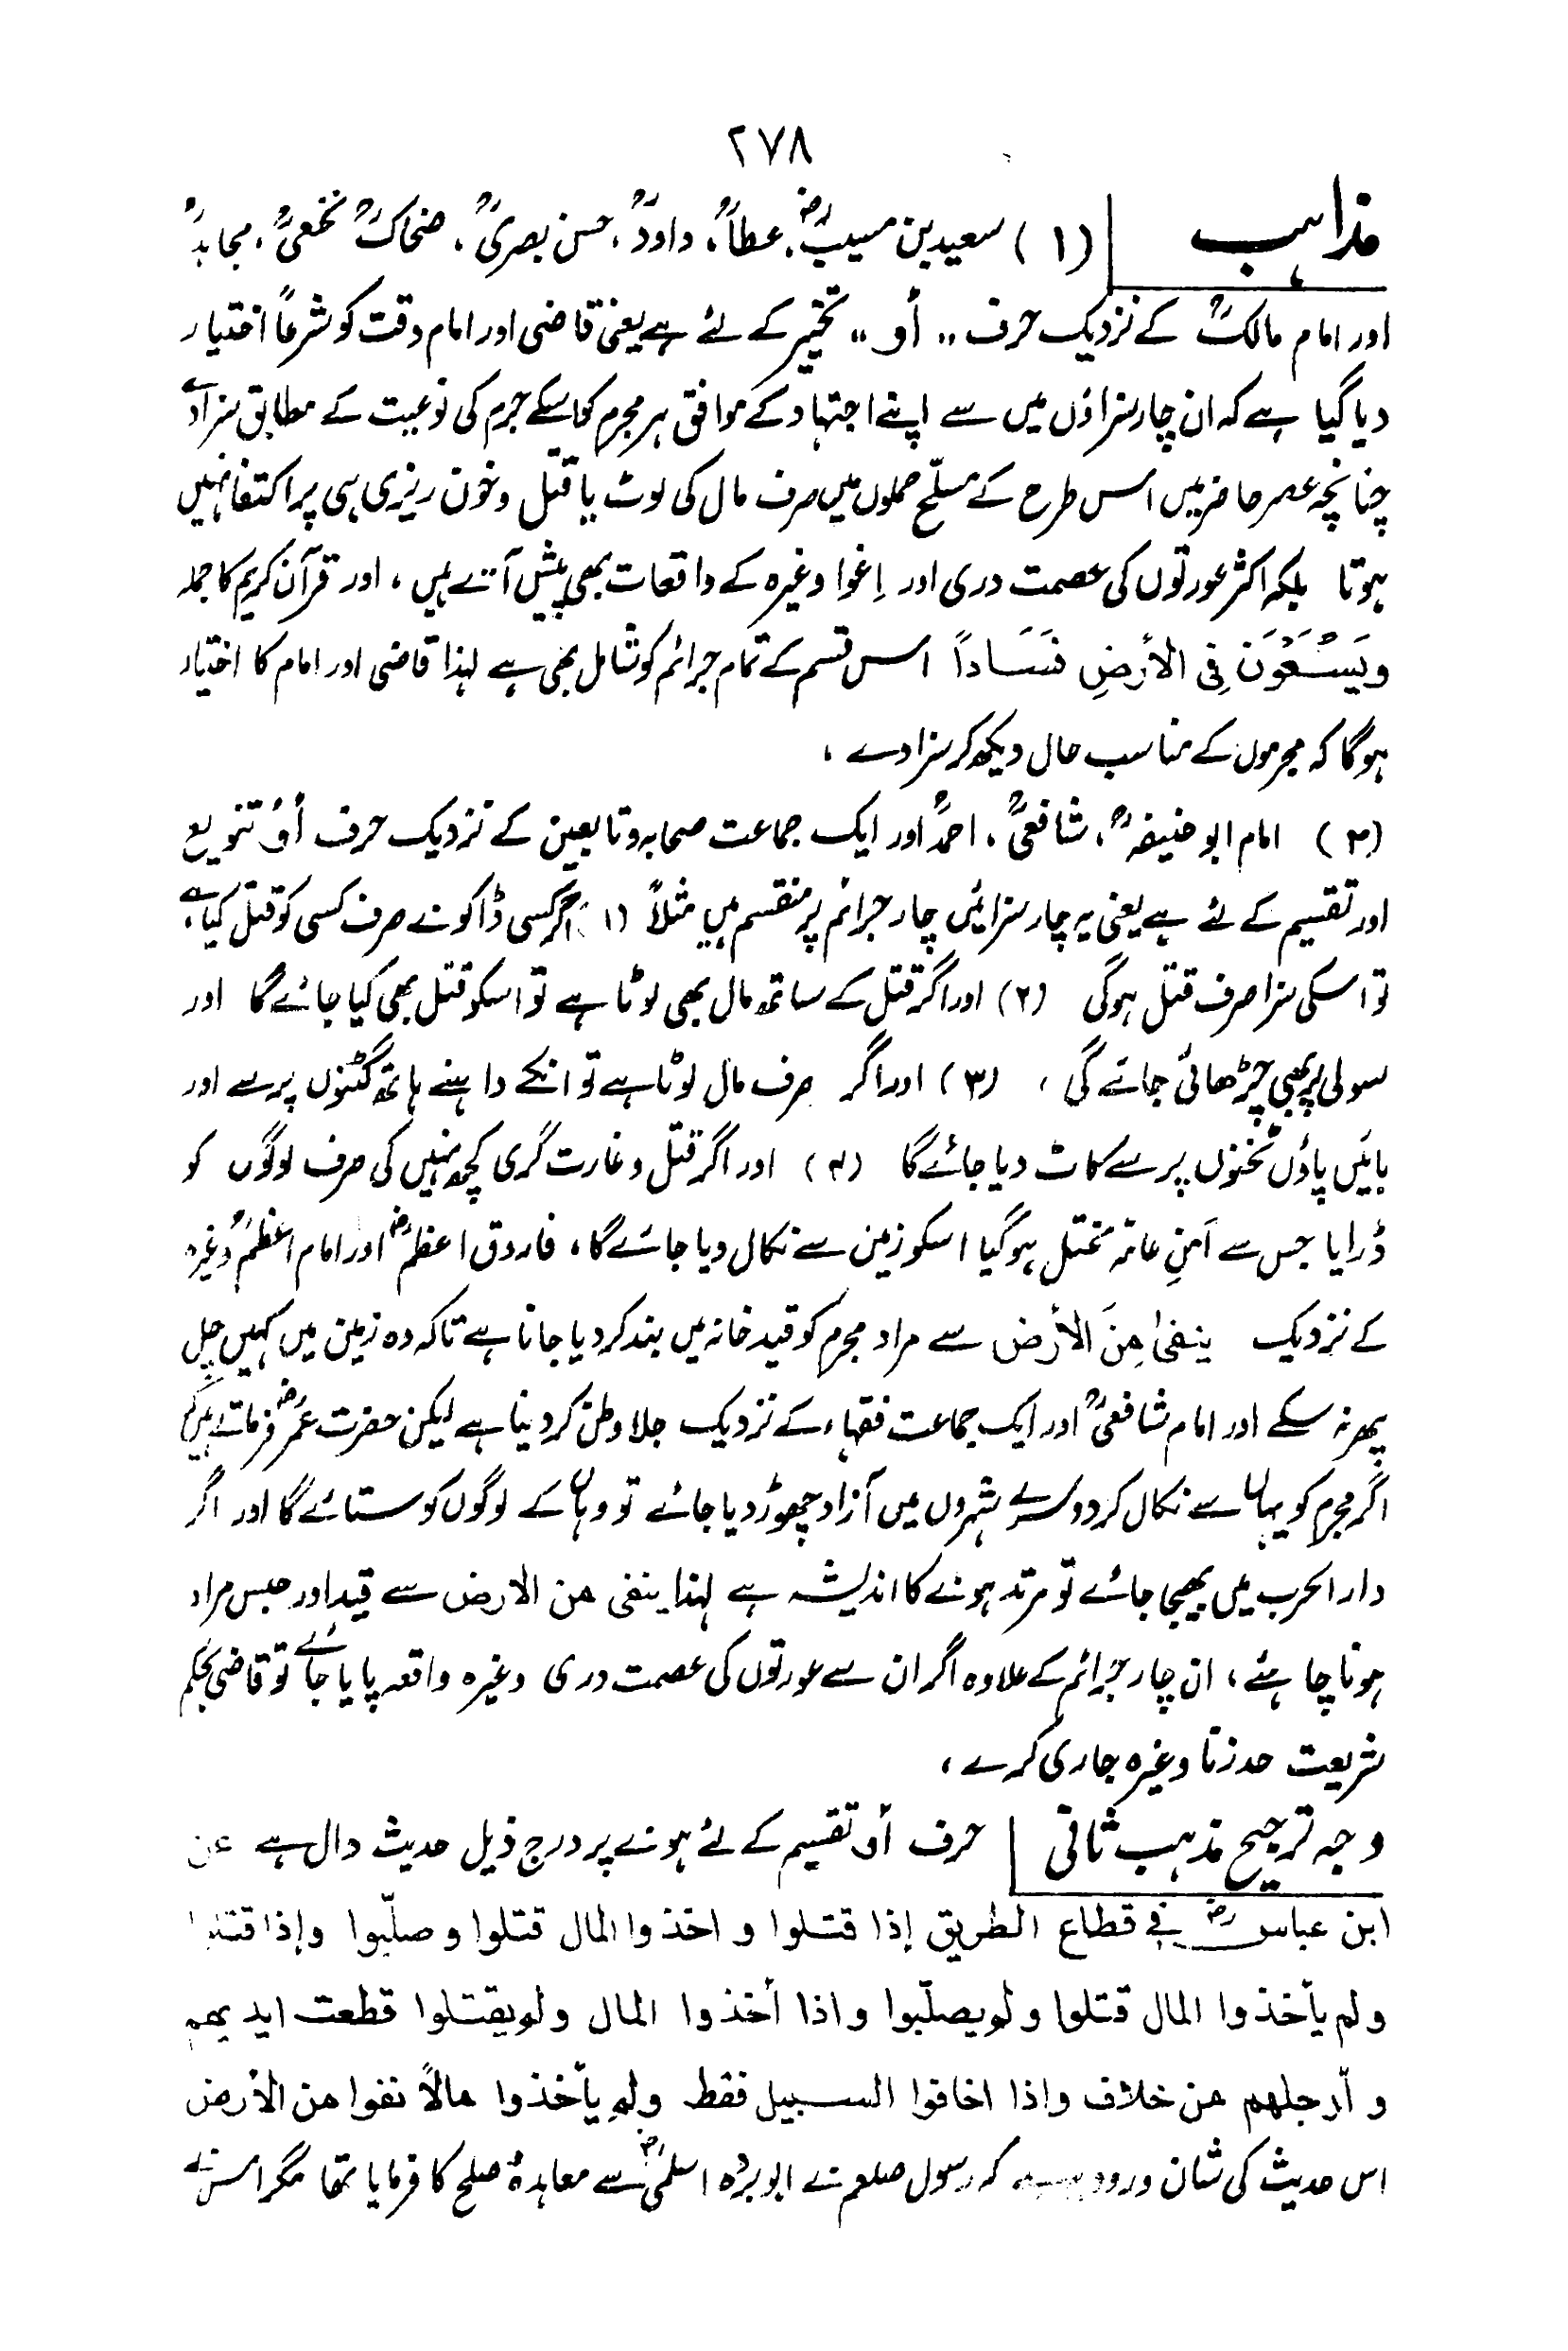 ۲۷۸
مذاہب (۱) سعید بن مسیبؓ، عطاءؒ، داودؒ، حسن بصریؒ، ضحاکؒ نخعیؒ، مجاہدؒ
اور امام مالکؒ کے نزدیک حرف ،، أو ،، تخییر کے لئے ہے یعنی قاضی اور امام وقت کو شرعاً اختیار
دیا گیا ہے کہ ان چار سزاؤں میں سے اپنے اجتہاد کے موافق ہر مجرم کو اسکے جرم کی نوعیت کے مطابق سزا دے
چنانچہ عصر حاضر میں اس طرح کے مسلّح حملوں میں صرف مال کی لوٹ یا قتل و خون ریزی ہی پر اکتفا نہیں
ہوتا بلکہ اکثر عورتوں کی عصمت دری اور اِغوا وغیرہ کے واقعات بھی پیش آتے ہیں ، اور قرآن کریم کا جملہ
وَیَسْعَوْنَ فِی الأرضِ فَسَاداً اس قسم کے تمام جرائم کو شامل بھی ہے لہذا قاضی اور امام کا اختیار
ہوگا کہ مجرموں کے مناسب حال دیکھ کر سزا دے ،
(۲) امام ابو حنیفہؒ ، شافعیؒ ، احمدؒ اور ایک جماعت صحابہ و تابعین کے نزدیک حرف أو تنویع
اور تقسیم کے لئے ہے یعنی یہ چار سزائیں چار جرائم پر منقسم ہیں مثلاً (۱) اگر کسی ڈاکو نے صرف کسی کو قتل کیا ہے
تو اسکی سزا صرف قتل ہوگی (۲) اور اگر قتل کے ساتھ مال بھی لوٹا ہے تو اسکو قتل بھی کیا جائے گا اور
سولی پر بھی چڑھائی جائے گی ، (۳) اور اگر صرف مال لوٹا ہے تو انکے داہنے ہاتھ گٹنوں پر سے اور
بائیں پاؤں ٹخنوں پر سے کاٹ دیا جائے گا (۴) اور اگر قتل و غارت گری کچھ نہیں کی صرف لوگوں کو
ڈرایا جس سے اَمنِ عامہ مختل ہو گیا اسکو زمین سے نکال دیا جائے گا ، فاروق اعظمؓ اور امام اعظمؒ وغیرہ
کے نزدیک ینفیٰ مِنَ الأرض سے مراد مجرم کو قید خانہ میں بند کر دیا جانا ہے تاکہ وہ زمین میں کہیں چل
پھر نہ سکے اور امام شافعیؒ اور ایک جماعت فقہاء کے نزدیک جلا وطن کر دینا ہے لیکن حضرت عمرؓ فرماتے ہیں کہ
اگر مجرم کو یہاں سے نکال کر دوسرے شہروں میں آزاد چھوڑ دیا جائے تو وہاں کے لوگوں کو ستائے گا اور اگر
دار الحرب میں بھیجا جائے تو مرتد ہونے کا اندیشہ ہے لہذا ینفی من الارض سے قید اور حبس مراد
ہونا چاہئے ، ان چار جرائم کے علاوہ اگر ان سے عورتوں کی عصمت دری وغیرہ واقعہ پایا جائے تو قاضی بحکم
شریعت حد زنا وغیرہ جاری کرے ،
وجہ ترجیح مذہب ثانی حرف أو تقسیم کے لئے ہونے پر درج ذیل حدیث دال ہے عن
ابن عباسؓ فی قطاع الطریق إذا قتلوا و اخذوا المال قتلوا و صلّبوا وإذا قتلوا
ولم یأخذوا المال قتلوا ولم یصلّبوا واذا أخذوا المال ولم یقتلوا قطعت ایدیهم
وأرجلهم من خلاف واذا اخافوا السبیل فقط ولم یأخذوا مالاً نفوا من الأرض
اس حدیث کی شان ورود یہ ہے کہ رسول صلعم نے ابو بردہ اسلمیؓ سے معاہدۂ صلح کا فرمایا تھا مگر اس نے